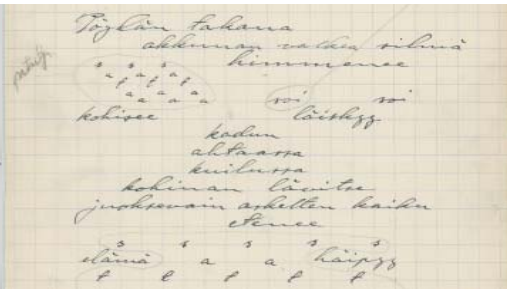 Pöydän takana
akkunan valkea silmä
himmenee
s s s s
a a a a
a a a a a
soi soi
kohisee läiskyy
kadun
ahtaassa
kuilussa
kohinan lävitse
juoksevain askelten kaiku
etenee
s s s s s
elämä a a häipyy